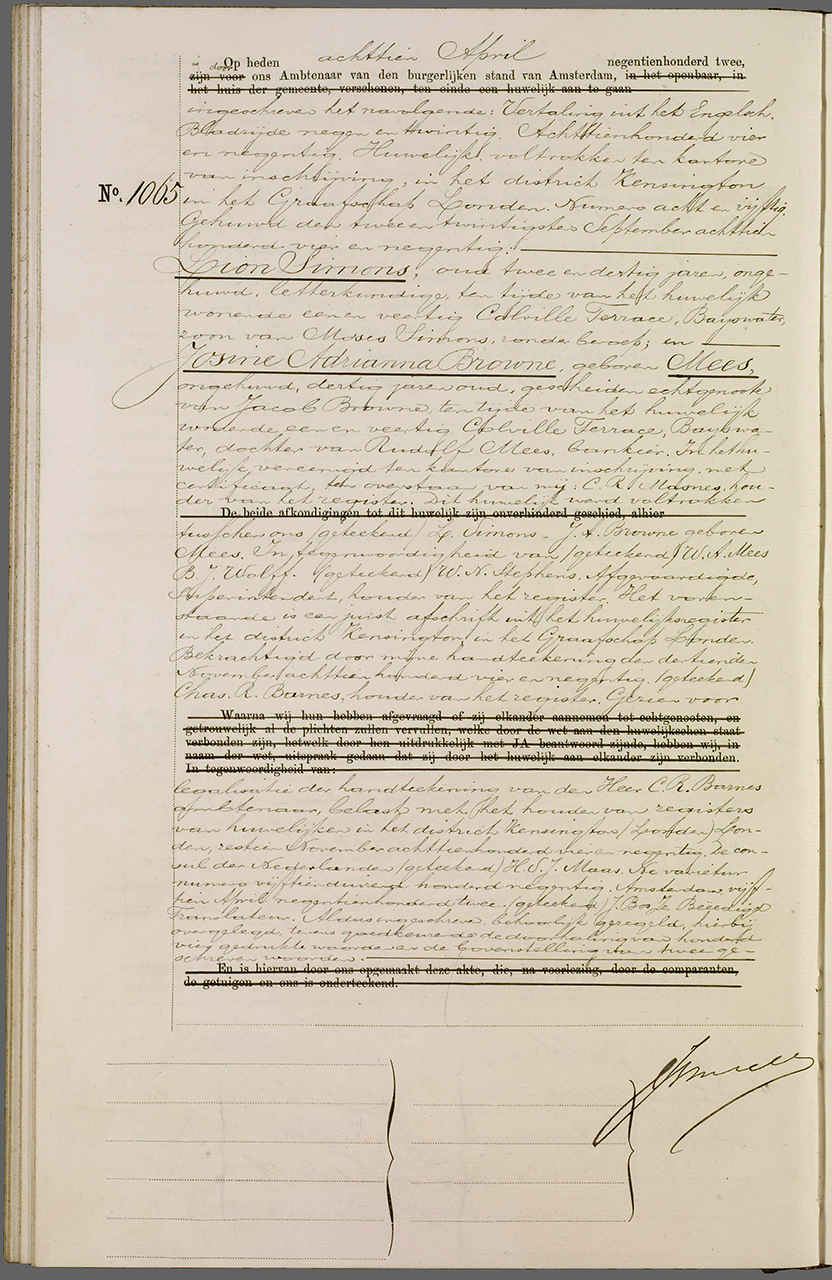 Op heden achttien April negentienhonderd twee,
is door
zijn voor ons Ambtenaar van den burgerlijken stand van Amsterdam, in het openbaar, in
het huis der gemeente, verschenen, ten einde een huwelijk aan te gaan
ingeschreven het navolgende: Vertaling uit het Engelsch.
Bladzijde negen en twintig. Achttienhonderd vier
en negentig. Huwelijk voltrokken ten kantore
van inschrijving, in het district Kensington
No. 1065
in het Graafschap Londen. Numero acht en vijftig.
Gehuwd den twee en twintigsten September achttien
honderd vier en negentig:
Lion Simons, oud twee en dertig jaren, onge-
huwd, letterkundige, ten tijde van het huwelijk
wonende een en veertig Colville Terrace, Bayswater,
zoon van Moses Simons, zonder beroep; en
Josine Adrianna Browne, geboren Mees,
ongehuwd, dertig jaren oud, gescheiden echtgenoote
van Jacob Browne, ten tijde van het huwelijk
wonende een en veertig Colville Terrace, Bayswa-
ter, dochter van Rudolf Mees, bankier. In het hu-
welijk vereenigd ten kantore van inschrijving met
certificaat, ten overstaan van mij: C. R. Masnes, hou-
der van het register. Dit huwelijk werd voltrokken
De beide afkondigingen tot dit huwelijk zijn onverhinderd geschied, alhier
tusschen ons (geteekend) L. Simons. J. A. Browne geboren
Mees. In tegenwoordigheid van (geteekend) W. A. Mees
B. J. Wolff. (geteekend) W. N. Stephens, Afgevaardigde,
Superintendent, houder van het register. Het voren-
staande is een juist afschrift uit het huwelijksregister
in het district Kensington, in het Graafschap Londen.
Bekrachtigd door mijne handteekening den dertienden
November achttien honderd vier en negentig (geteekend)
Chas. R. Barnes, houder van het register. Gezien voor
Waarna wij hun hebben afgevraagd of zij elkander aannemen tot echtgenooten, en
getrouwelijk al de plichten zullen vervullen, welke door de wet aan den huwelijkschen staat
verbonden zijn, hetwelk door hen uitdrukkelijk met JA beantwoord zijnde, hebben wij, in
naam der wet, uitspraak gedaan dat zij door het huwelijk aan elkander zijn verbonden.
In tegenwoordigheid van:
legalisatie der handteekening van den Heer C. R. Barnes
ambtenaar, belast met het houden van registers
van huwelijken in het district Kensington (Londen) Lon-
den, zestien November achttienhonderd vier en negentig. De con-
sul der Nederlanden (geteekend) H. S. J. Maas. Ne varietur
numero vijftienduizend honderd negentig. Amsterdam vijf-
tien April negentienhonderd twee (geteekend) J. Beëedigd
Translateur. Aldus ingeschreven, behoorlijk geregeld, hierbij
overgelegd, tevens goedkeurende de doorhaling van honderd
vier gedrukte woorden en de bovenstelling van twee ge-
schreven woorden.
En is hiervan door ons opgemaakt deze akte, die, na voorlezing, door de comparanten,
de getuigen en ons is onderteekend.